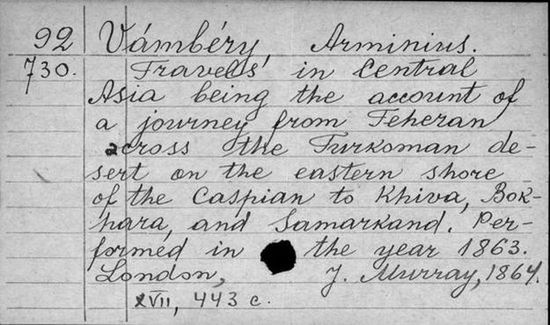 92 Vámbéry, Arminius.
730. Travels in Central
Asia being the account of
a journey from Teheran
across the Turkoman de-
sert on the eastern shore
of the Caspian to Khiva, Bok-
hara, and Samarkand. Per-
formed in the year 1863.
London, J. Murray, 1864.
XVII, 443 c.